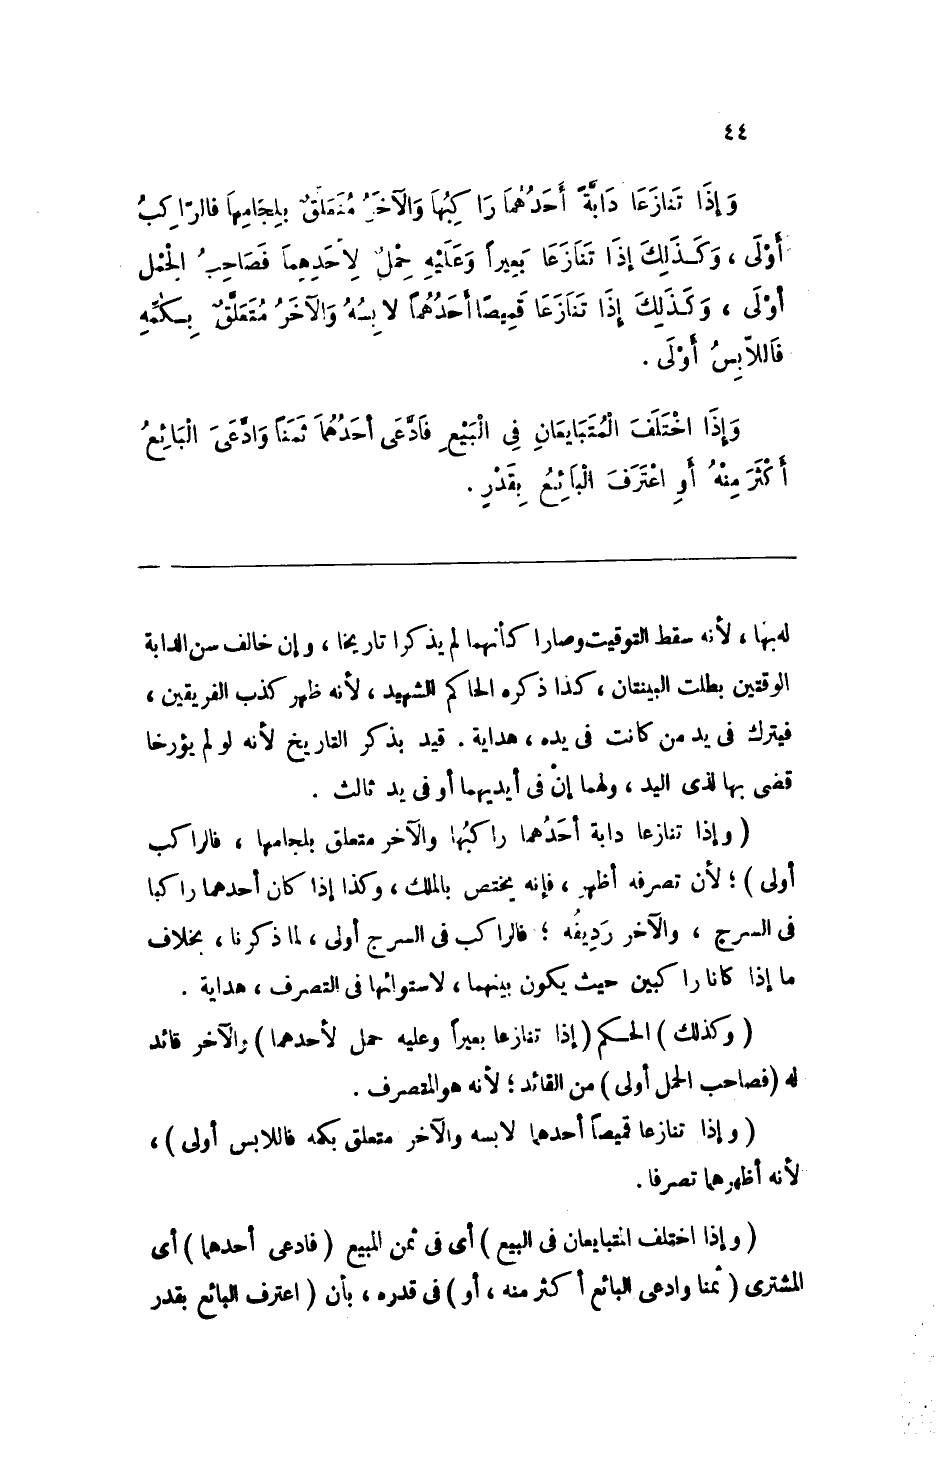 ٤٤
وَإِذَا تَنَازَعَا دَابَّةً أَحَدُهُمَا رَاكِبُهَا وَالْآخَرُ مُتَعَلِّقٌ بِلِجَامِهَا فَالرَّاكِبُ
أَوْلَى ، وَكَذَلِكَ إِذَا تَنَازَعَا بَعِيراً وَعَلَيْهِ حِمْلٌ لِأَحَدِهِمَا فَصَاحِبُ الْحِمْلِ
أَوْلَى ، وَكَذَلِكَ إِذَا تَنَازَعَا قَمِيصًا أَحَدُهُمَا لَابِسُهُ وَالْآخَرُ مُتَعَلِّقٌ بِكُمِّهِ
فَاللَّابِسُ أَوْلَى .
وَإِذَا اخْتَلَفَ الْمُتَبَايِعَانِ فِى الْبَيْعِ فَادَّعَى أَحَدُهُمَا ثَمَنًا وَادَّعَى الْبَائِعُ
أَكْثَرَ مِنْهُ أَوِ اعْتَرَفَ الْبَائِعُ بِقَدْرٍ .
له بها ، لأنه سقط التوقيت وصارا كأنهما لم يذكرا تاريخا ، وإن خالف سن الدابة
الوقتين بطلت البينتان ، كذا ذكره الحاكم الشهيد ، لأنه ظهر كذب الفريقين ،
فيترك فى يد من كانت فى يده ، هداية . قيد بذكر التاريخ لأنه لو لم يؤرخا
قضى بها لذى اليد ، ولهما إنْ فى أيديهما أو فى يد ثالث .
( وإذا تنازعا دابة أحَدُهما راكبُها والآخر متعلق بلجامها ، فالراكب
أولى ) ؛ لأن تصرفه أظهر ، فإنه يختص بالملك ، وكذا إذا كان أحدهما راكبا
فى السرج ، والآخر رَدِيفُه ؛ فالراكب فى السرج أولى ، لما ذكرنا ، بخلاف
ما إذا كانا راكبين حيث يكون بينهما ، لاستوائهما فى التصرف ، هداية .
( وكذلك ) الحكم ( إذا تنازعا بعيراً وعليه حمل لأحدهما ) والآخر قائد
له ( فصاحب الحمل أولى ) من القائد ؛ لأنه هو المتصرف .
( وإذا تنازعا قميصاً أحدهما لابسه والآخر متعلق بكمه فاللابس أولى ) ،
لأنه أظهرهما تصرفا .
( وإذا اختلف المتبايعان فى البيع ) أى فى ثمن المبيع ( فادعى أحدهما ) أى
المشترى ( ثمنا وادعى البائع أكثر منه ، أو ) فى قدره ، بأن ( اعترف البائع بقدر